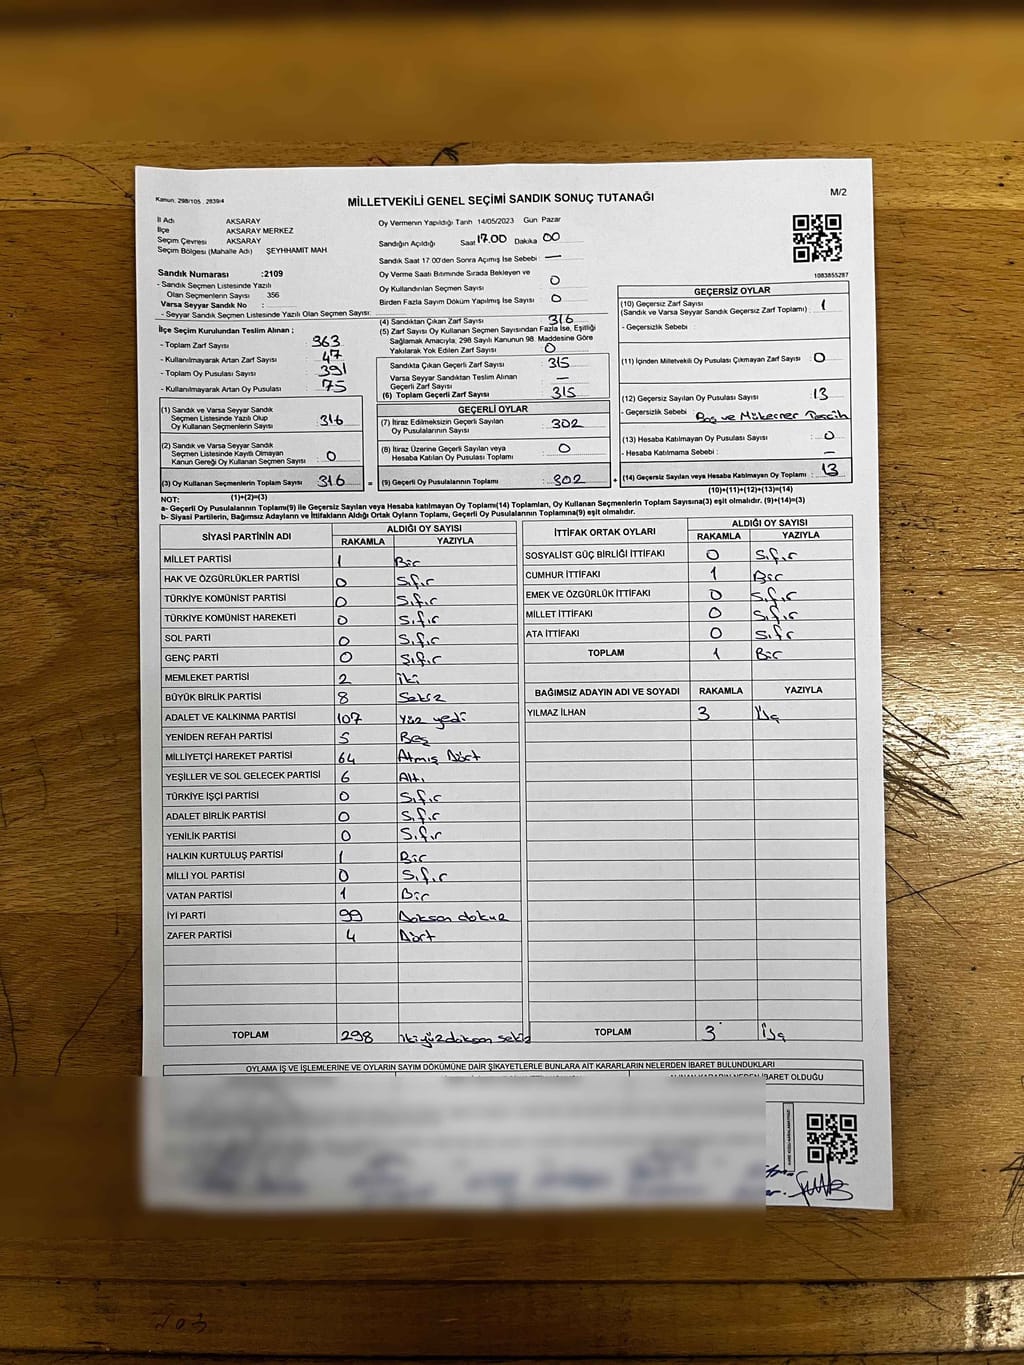 Kanun. 298/105 , 2839/4
MİLLETVEKİLİ GENEL SEÇİMİ SANDIK SONUÇ TUTANAĞI
M/2
İl Adı AKSARAY
İlçe AKSARAY MERKEZ
Seçim Çevresi AKSARAY
Seçim Bölgesi (Mahalle Adı) ŞEYHHAMIT MAH
Sandık Numarası :2109
- Sandık Seçmen Listesinde Yazılı
Olan Seçmenlerin Sayısı 356
Varsa Seyyar Sandık No :
- Seyyar Sandık Seçmen Listesinde Yazılı Olan Seçmen Sayısı:
Oy Vermenin Yapıldığı Tarih 14/05/2023 Gün Pazar
Sandığın Açıldığı Saat 17.00 Dakika 00
Sandık Saat 17:00'den Sonra Açımış İse Sebebi : —
Oy Verme Saati Bitiminde Sırada Bekleyen ve
Oy Kullandırılan Seçmen Sayısı 0
Birden Fazla Sayım Döküm Yapılmış İse Sayısı 0
1083855287
İlçe Seçim Kurulundan Teslim Alınan ;
- Toplam Zarf Sayısı 363
- Kullanılmayarak Artan Zarf Sayısı 47
- Toplam Oy Pusulası Sayısı 391
- Kullanılmayarak Artan Oy Pusulası 75
(1) Sandık ve Varsa Seyyar Sandık
Seçmen Listesinde Yazılı Olup
Oy Kullanan Seçmenlerin Sayısı 316
(2) Sandık ve Varsa Seyyar Sandık
Seçmen Listesinde Kayıtlı Olmayan
Kanun Gereği Oy Kullanan Seçmen Sayısı 0
(3) Oy Kullanan Seçmenlerin Toplam Sayısı 316 =
(4) Sandıktan Çıkan Zarf Sayısı 316
(5) Zarf Sayısı Oy Kullanan Seçmen Sayısından Fazla İse, Eşitliği
Sağlamak Amacıyla; 298 Sayılı Kanunun 98. Maddesine Göre
Yakılarak Yok Edilen Zarf Sayısı 0
Sandıkta Çıkan Geçerli Zarf Sayısı 315
Varsa Seyyar Sandıktan Teslim Alınan
Geçerli Zarf Sayısı —
(6) Toplam Geçerli Zarf Sayısı 315
GEÇERLİ OYLAR
(7) İtiraz Edilmeksizin Geçerli Sayılan
Oy Pusulalarının Sayısı 302
(8) İtiraz Üzerine Geçerli Sayılan veya
Hesaba Katılan Oy Pusulası Toplamı 0
(9) Geçerli Oy Pusulalarının Toplamı 302 +
GEÇERSİZ OYLAR
(10) Geçersiz Zarf Sayısı
(Sandık ve Varsa Seyyar Sandık Geçersiz Zarf Toplamı) 1
- Geçersizlik Sebebi
(11) İçinden Milletvekili Oy Pusulası Çıkmayan Zarf Sayısı 0
(12) Geçersiz Sayılan Oy Pusulası Sayısı 13
- Geçersizlik Sebebi : Boş ve Mükerrer Tercih
(13) Hesaba Katılmayan Oy Pusulası Sayısı 0
- Hesaba Katılmama Sebebi : —
(14) Geçersiz Sayılan veya Hesaba Katılmayan Oy Toplamı 13
NOT: (1)+(2)=(3) (10)+(11)+(12)+(13)=(14)
a- Geçerli Oy Pusulalarının Toplamı(9) ile Geçersiz Sayılan veya Hesaba katılmayan Oy Toplamı(14) Toplamları, Oy Kullanan Seçmenlerin Toplam Sayısına(3) eşit olmalıdır. (9)+(14)=(3)
b- Siyasi Partilerin, Bağımsız Adayların ve İttifakların Aldığı Ortak Oyların Toplamı, Geçerli Oy Pusulalarının Toplamına(9) eşit olmalıdır.
SİYASİ PARTİNİN ADI ALDIĞI OY SAYISI
RAKAMLA YAZIYLA
MİLLET PARTİSİ 1 Bir
HAK VE ÖZGÜRLÜKLER PARTİSİ 0 Sıfır
TÜRKİYE KOMÜNİST PARTİSİ 0 Sıfır
TÜRKİYE KOMÜNİST HAREKETİ 0 Sıfır
SOL PARTİ 0 Sıfır
GENÇ PARTİ 0 Sıfır
MEMLEKET PARTİSİ 2 iki
BÜYÜK BİRLİK PARTİSİ 8 Sekiz
ADALET VE KALKINMA PARTİSİ 107 Yüz yedi
YENİDEN REFAH PARTİSİ 5 Beş
MİLLİYETÇİ HAREKET PARTİSİ 64 Atmış Dört
YEŞİLLER VE SOL GELECEK PARTİSİ 6 Altı
TÜRKİYE İŞÇİ PARTİSİ 0 Sıfır
ADALET BİRLİK PARTİSİ 0 Sıfır
YENİLİK PARTİSİ 0 Sıfır
HALKIN KURTULUŞ PARTİSİ 1 Bir
MİLLİ YOL PARTİSİ 0 Sıfır
VATAN PARTİSİ 1 Bir
İYİ PARTİ 99 Doksan dokuz
ZAFER PARTİSİ 4 Dört
TOPLAM 298 ikiyüzdoksan sekiz
İTTİFAK ORTAK OYLARI ALDIĞI OY SAYISI
RAKAMLA YAZIYLA
SOSYALİST GÜÇ BİRLİĞİ İTTİFAKI 0 Sıfır
CUMHUR İTTİFAKI 1 Bir
EMEK VE ÖZGÜRLÜK İTTİFAKI 0 Sıfır
MİLLET İTTİFAKI 0 Sıfır
ATA İTTİFAKI 0 Sıfır
TOPLAM 1 Bir
BAĞIMSIZ ADAYIN ADI VE SOYADI RAKAMLA YAZIYLA
YILMAZ İLHAN 3 Üç
TOPLAM 3 Üç
OYLAMA İŞ VE İŞLEMLERİNE VE OYLARIN SAYIM DÖKÜMÜNE DAİR ŞİKAYETLERLE BUNLARA AİT KARARLARIN NELERDEN İBARET BULUNDUKLARI
ALINAN KARARIN NEDEN İBARET OLDUĞU